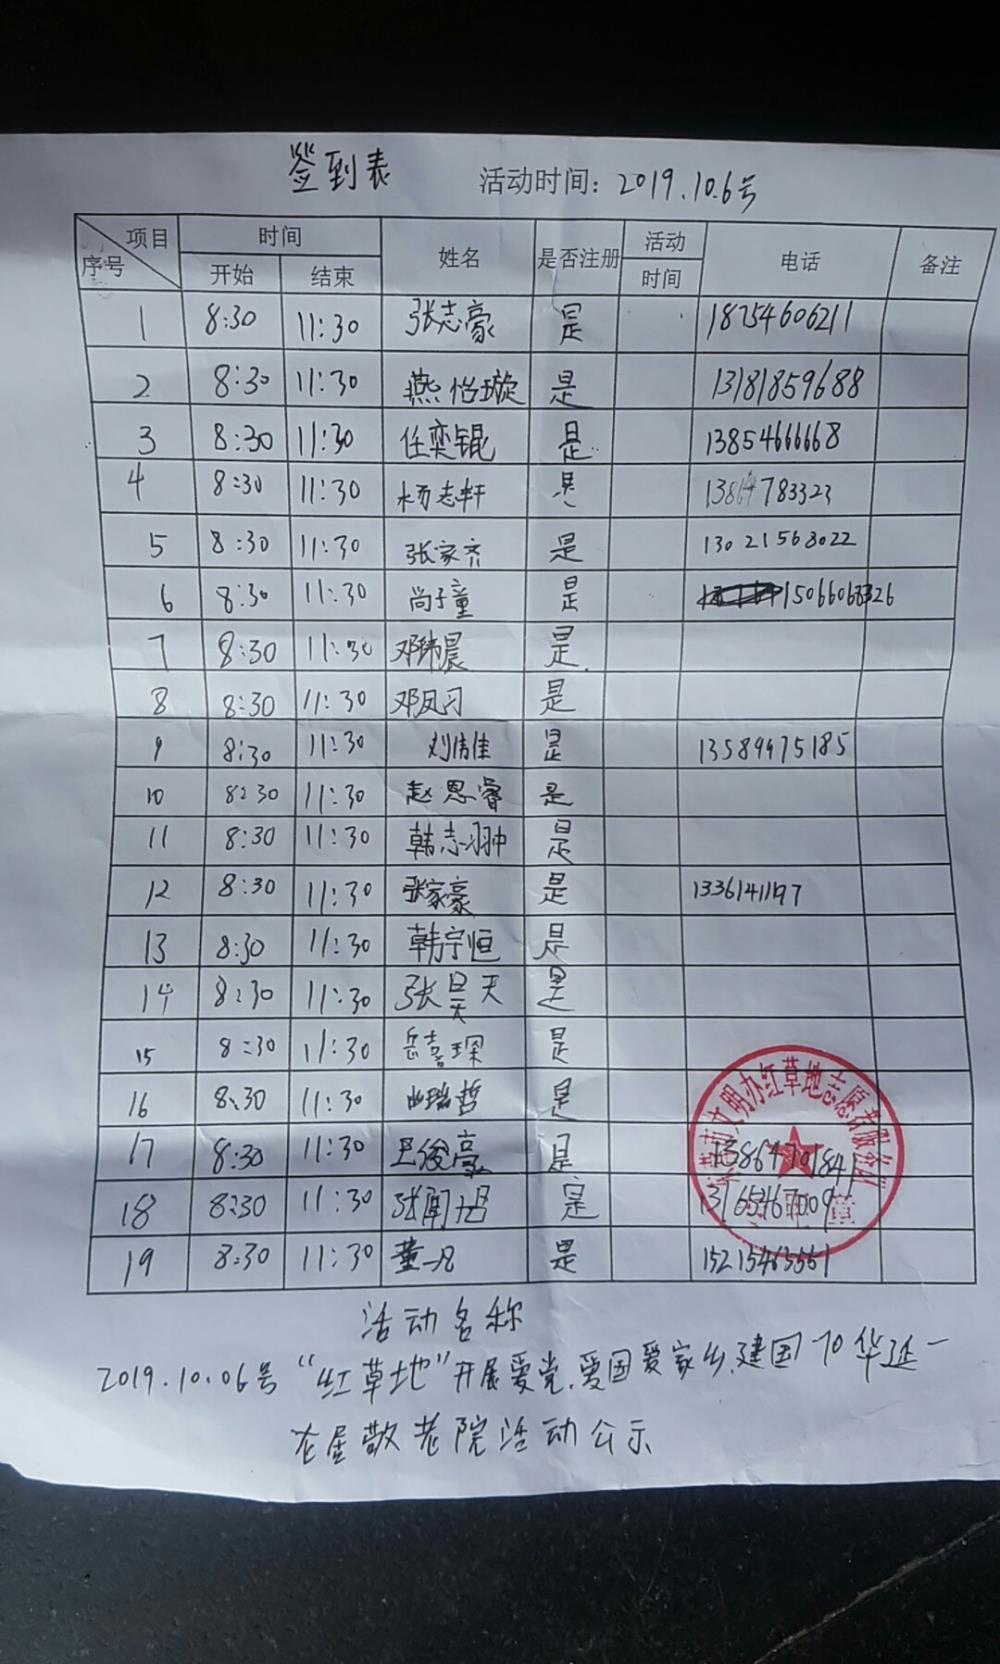 签到表 活动时间: 2019.10.6号
项目 时间 姓名 是否注册 活动 电话 备注
序号 开始 结束 时间
1 8:30 11:30 张志豪 是 18754606211
2 8:30 11:30 燕怡璇 是 13181859688
3 8:30 11:30 任奕锟 是 13854666668
4 8:30 11:30 杨志轩 是 13864783323
5 8:30 11:30 张家齐 是 13021568022
6 8:30 11:30 尚子童 是 15066068326
7 8:30 11:30 邓玮晨 是
8 8:30 11:30 邓凤习 是
9 8:30 11:30 刘倩佳 是 13589975185
10 8:30 11:30 赵恩睿 是
11 8:30 11:30 韩志翀 是
12 8:30 11:30 张家豪 是 13361411197
13 8:30 11:30 韩宁恒 是
14 8:30 11:30 张昊天 是
15 8:30 11:30 岳喜琛 是
16 8:30 11:30 曲瑞哲 是
17 8:30 11:30 王俊豪 是 13864701841
18 8:30 11:30 张闻 是 13165467009
19 8:30 11:30 董一凡 是 15215463561
市文明办红草地志愿者服务队
活动名称
2019.10.06号“红草地”开展爱党、爱国爱家乡、建国70华延一
敬老院活动公示